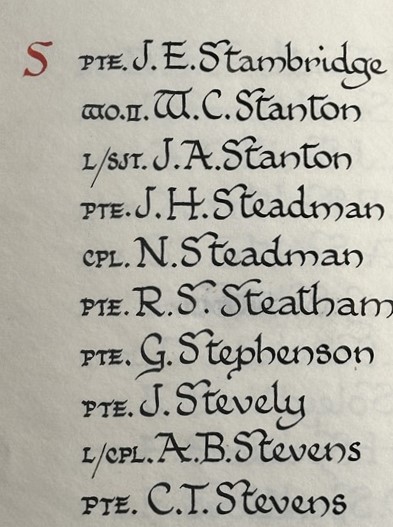 S PTE. J. E. Stambridge
WO.II. W. C. Stanton
L/SJT. J. A. Stanton
PTE. J. H. Steadman
CPL. N. Steadman
PTE. R. S. Steatham
PTE. G. Stephenson
PTE. J. Stevely
L/CPL. A. B. Stevens
PTE. C. T. Stevens